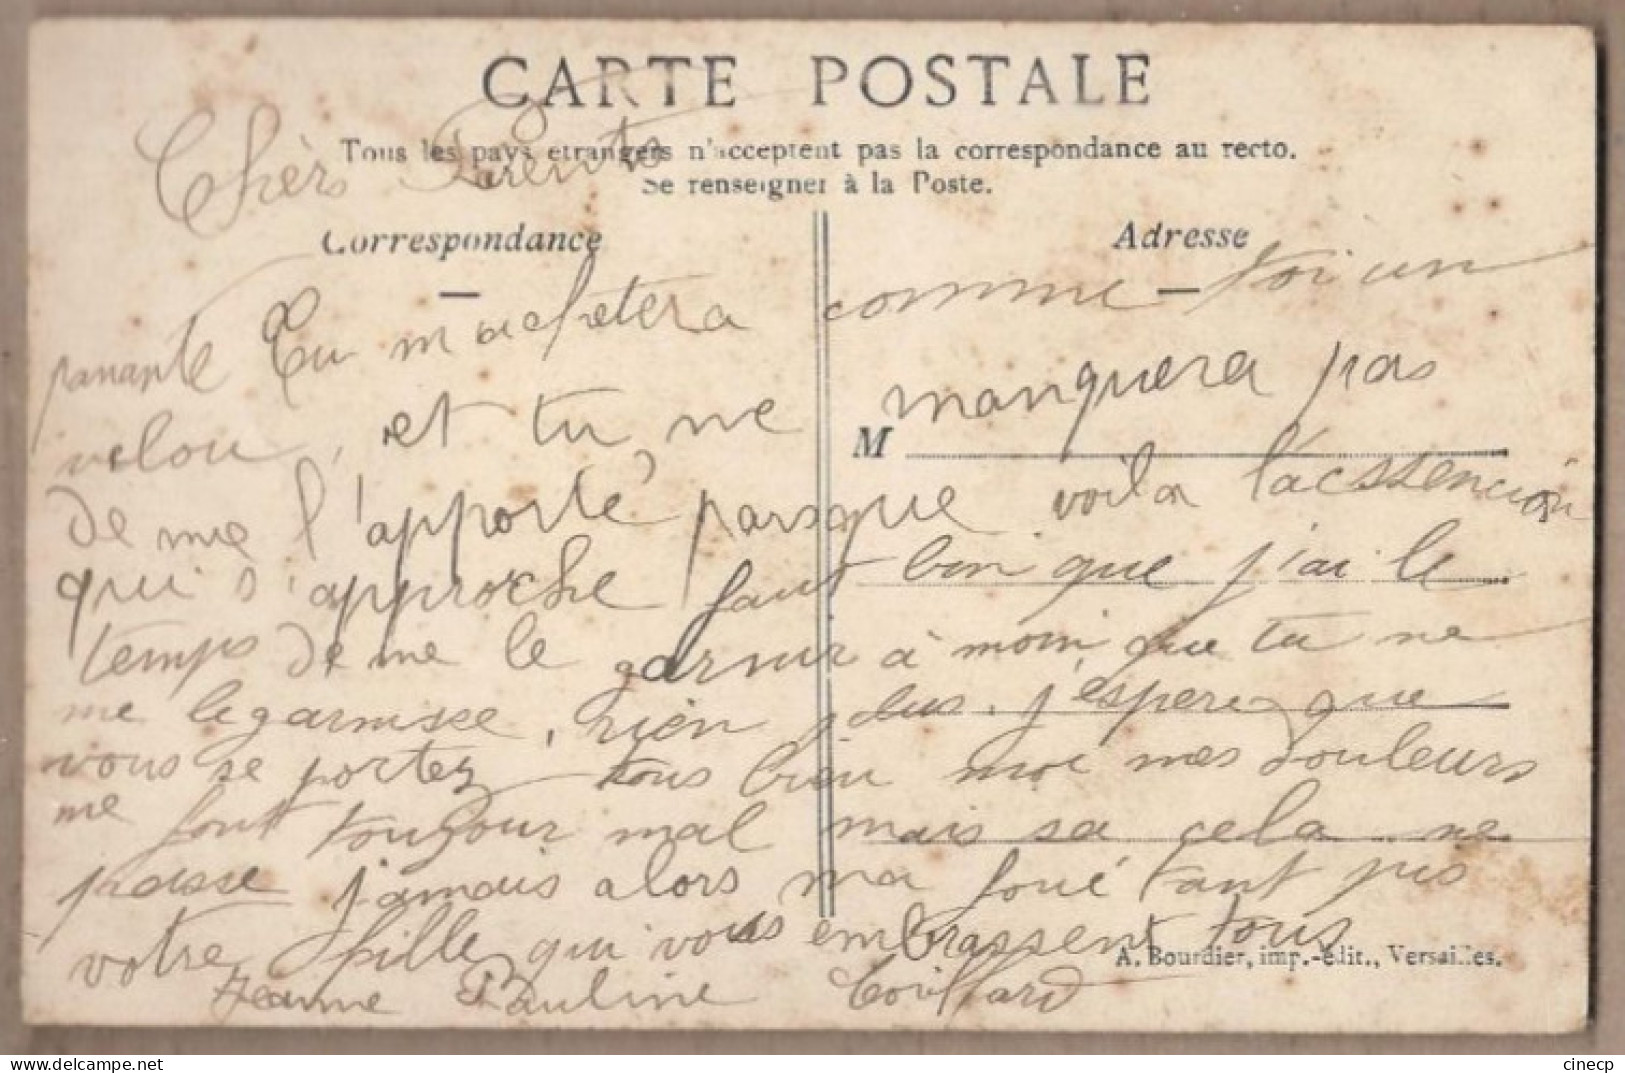 CARTE POSTALE
Tous les pays étrangers n'acceptent pas la correspondance au recto.
Se renseigner à la Poste.
Chèrs Parents
Correspondance
Adresse
Tu machetera comme toi un
velou, et tu ne manquera pas
M
de me l'apporté parsque voila l'acsstencion
qui s'approche faut bien que j'ai le
temps de me le garnir à moin que tu ne
me le garnisse, rien plus. j'espere que
vous se portez tous bien moi mes douleurs
me font toujour mal mais sa cela ne
passe jamais alors ma foué tant pis
votre fille qui vous embrassent tous
Jeanne Pauline
A. Bourdier, imp.-édit., Versailles.
cinecp